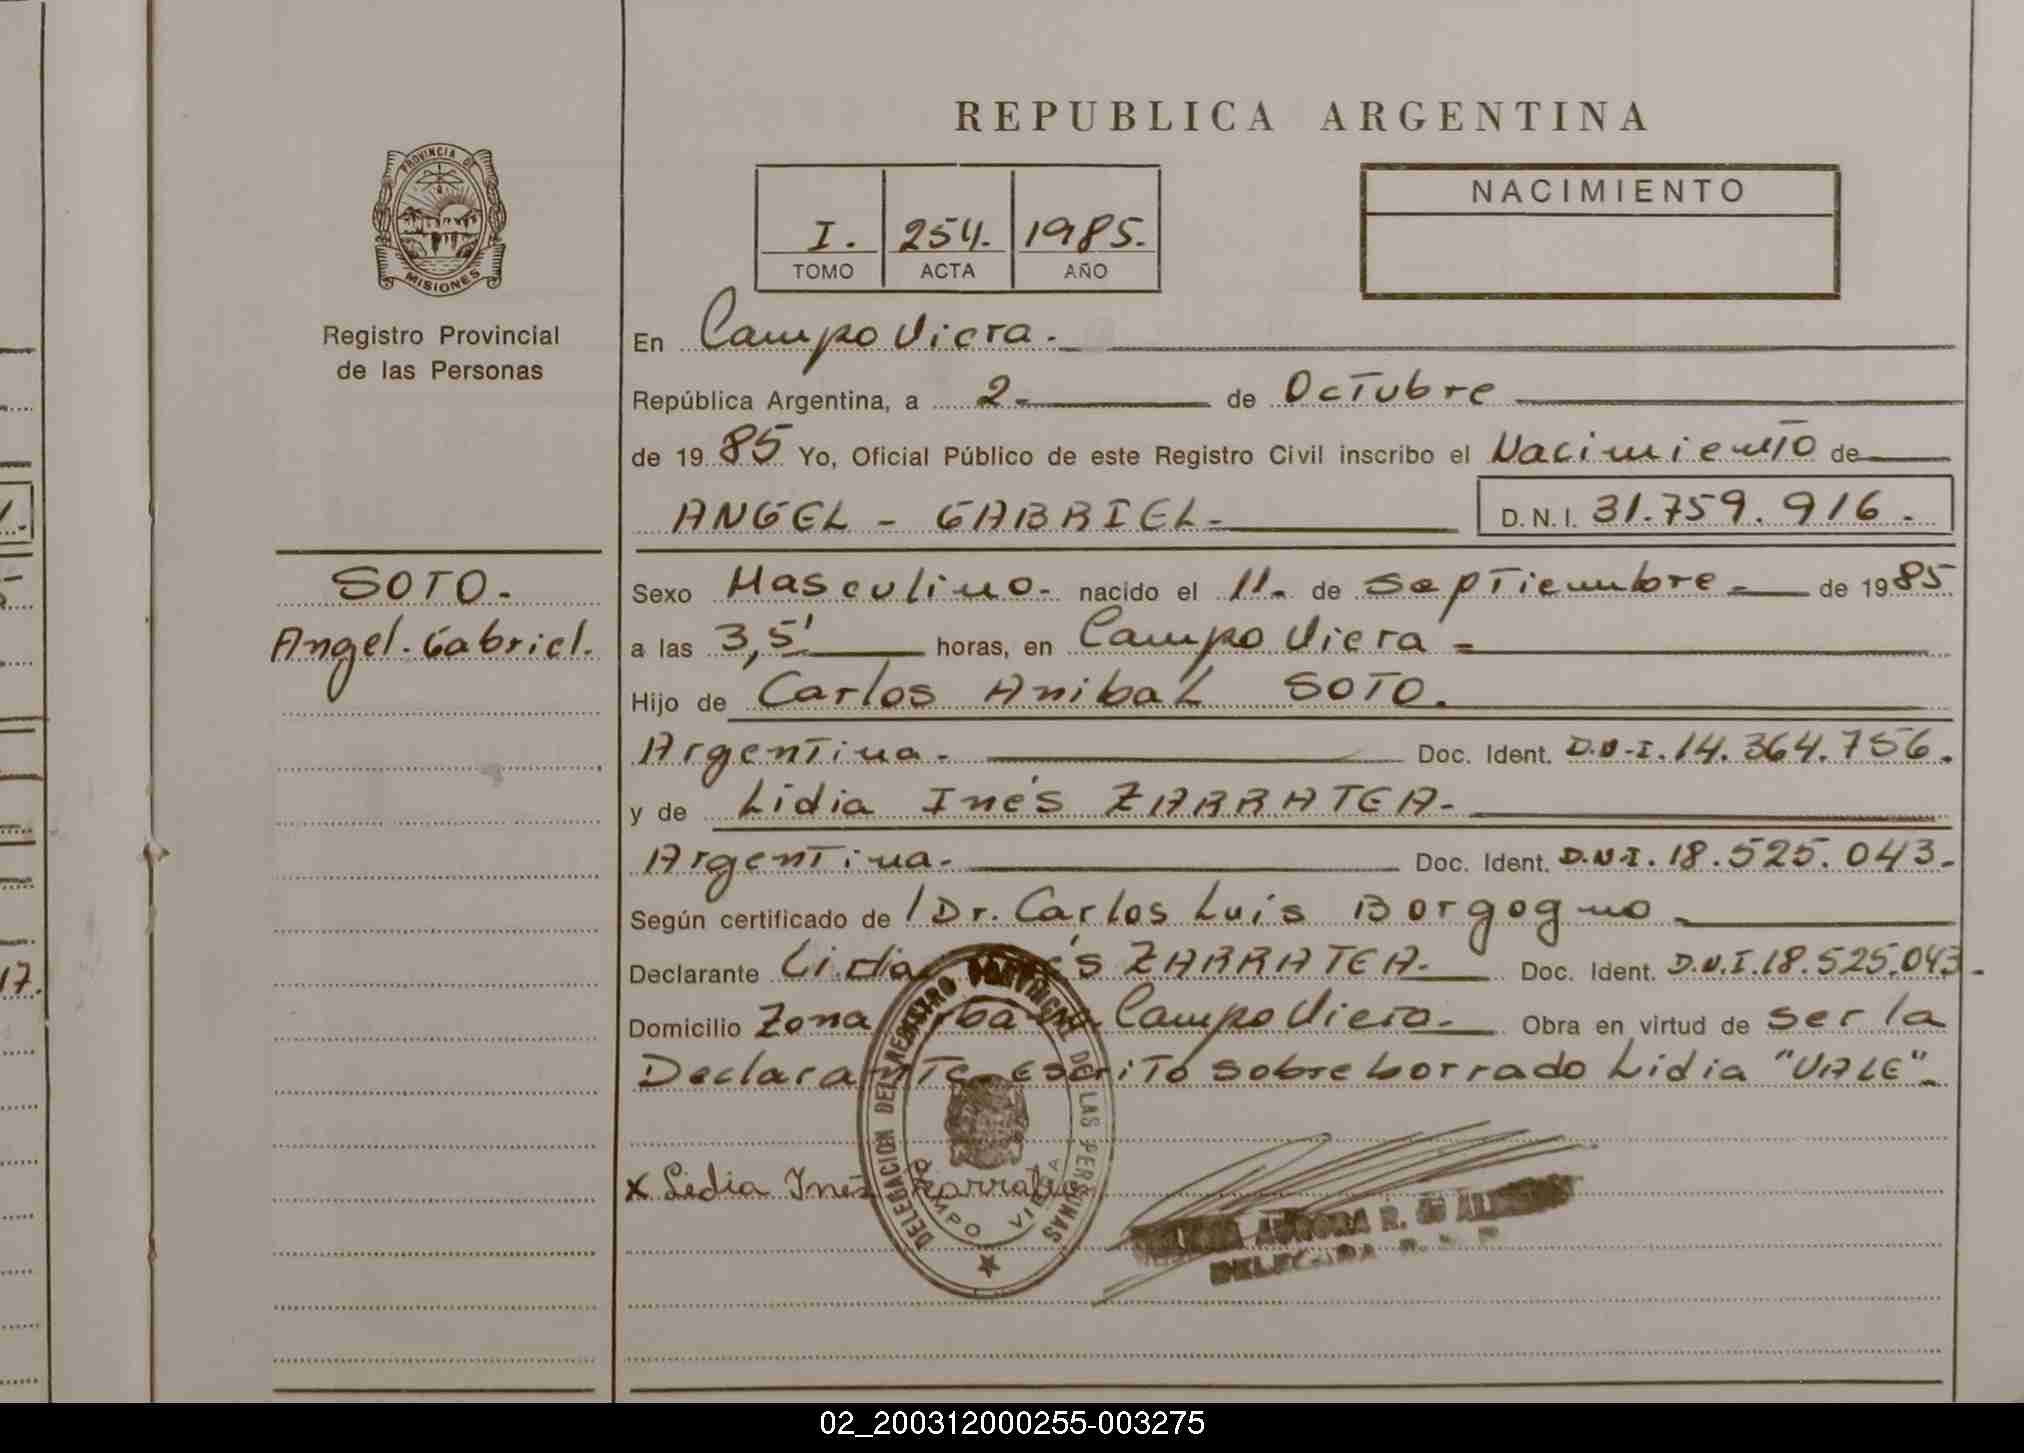 REPUBLICA ARGENTINA
PROVINCIA DE
MISIONES
Registro Provincial
de las Personas
I. 254. 1985.
TOMO ACTA AÑO
NACIMIENTO
En Campo Viera.
República Argentina, a 2 de Octubre
de 1985 Yo, Oficial Público de este Registro Civil inscribo el Nacimiento de
ANGEL - GABRIEL- D.N.I. 31.759.916.
SOTO.
Angel. Gabriel.
Sexo Masculino. nacido el 11. de Septiembre. de 1985
a las 3,5' horas, en Campo Viera
Hijo de Carlos Anibal SOTO.
Argentina. Doc. Ident. D.N.I. 14.364.756.
y de Lidia Inés ZARRATEA-
Argentina. Doc. Ident. D.N.I. 18.525.043-
Según certificado de /Dr. Carlos Luis Borgogno
Declarante Lidia Inés ZARRATEA- Doc. Ident. D.N.I. 18.525.043-
Domicilio Zona Urbana Campo Viera- Obra en virtud de ser la
Declarante escrito sobre borrado Lidia "VALE"
x Lidia Inés Zarratea
DELEGACION DEL REGISTRO PROVINCIAL DE LAS PERSONAS
CAMPO VIERA
AURORA R. DE
DELEGADA
02_200312000255-003275